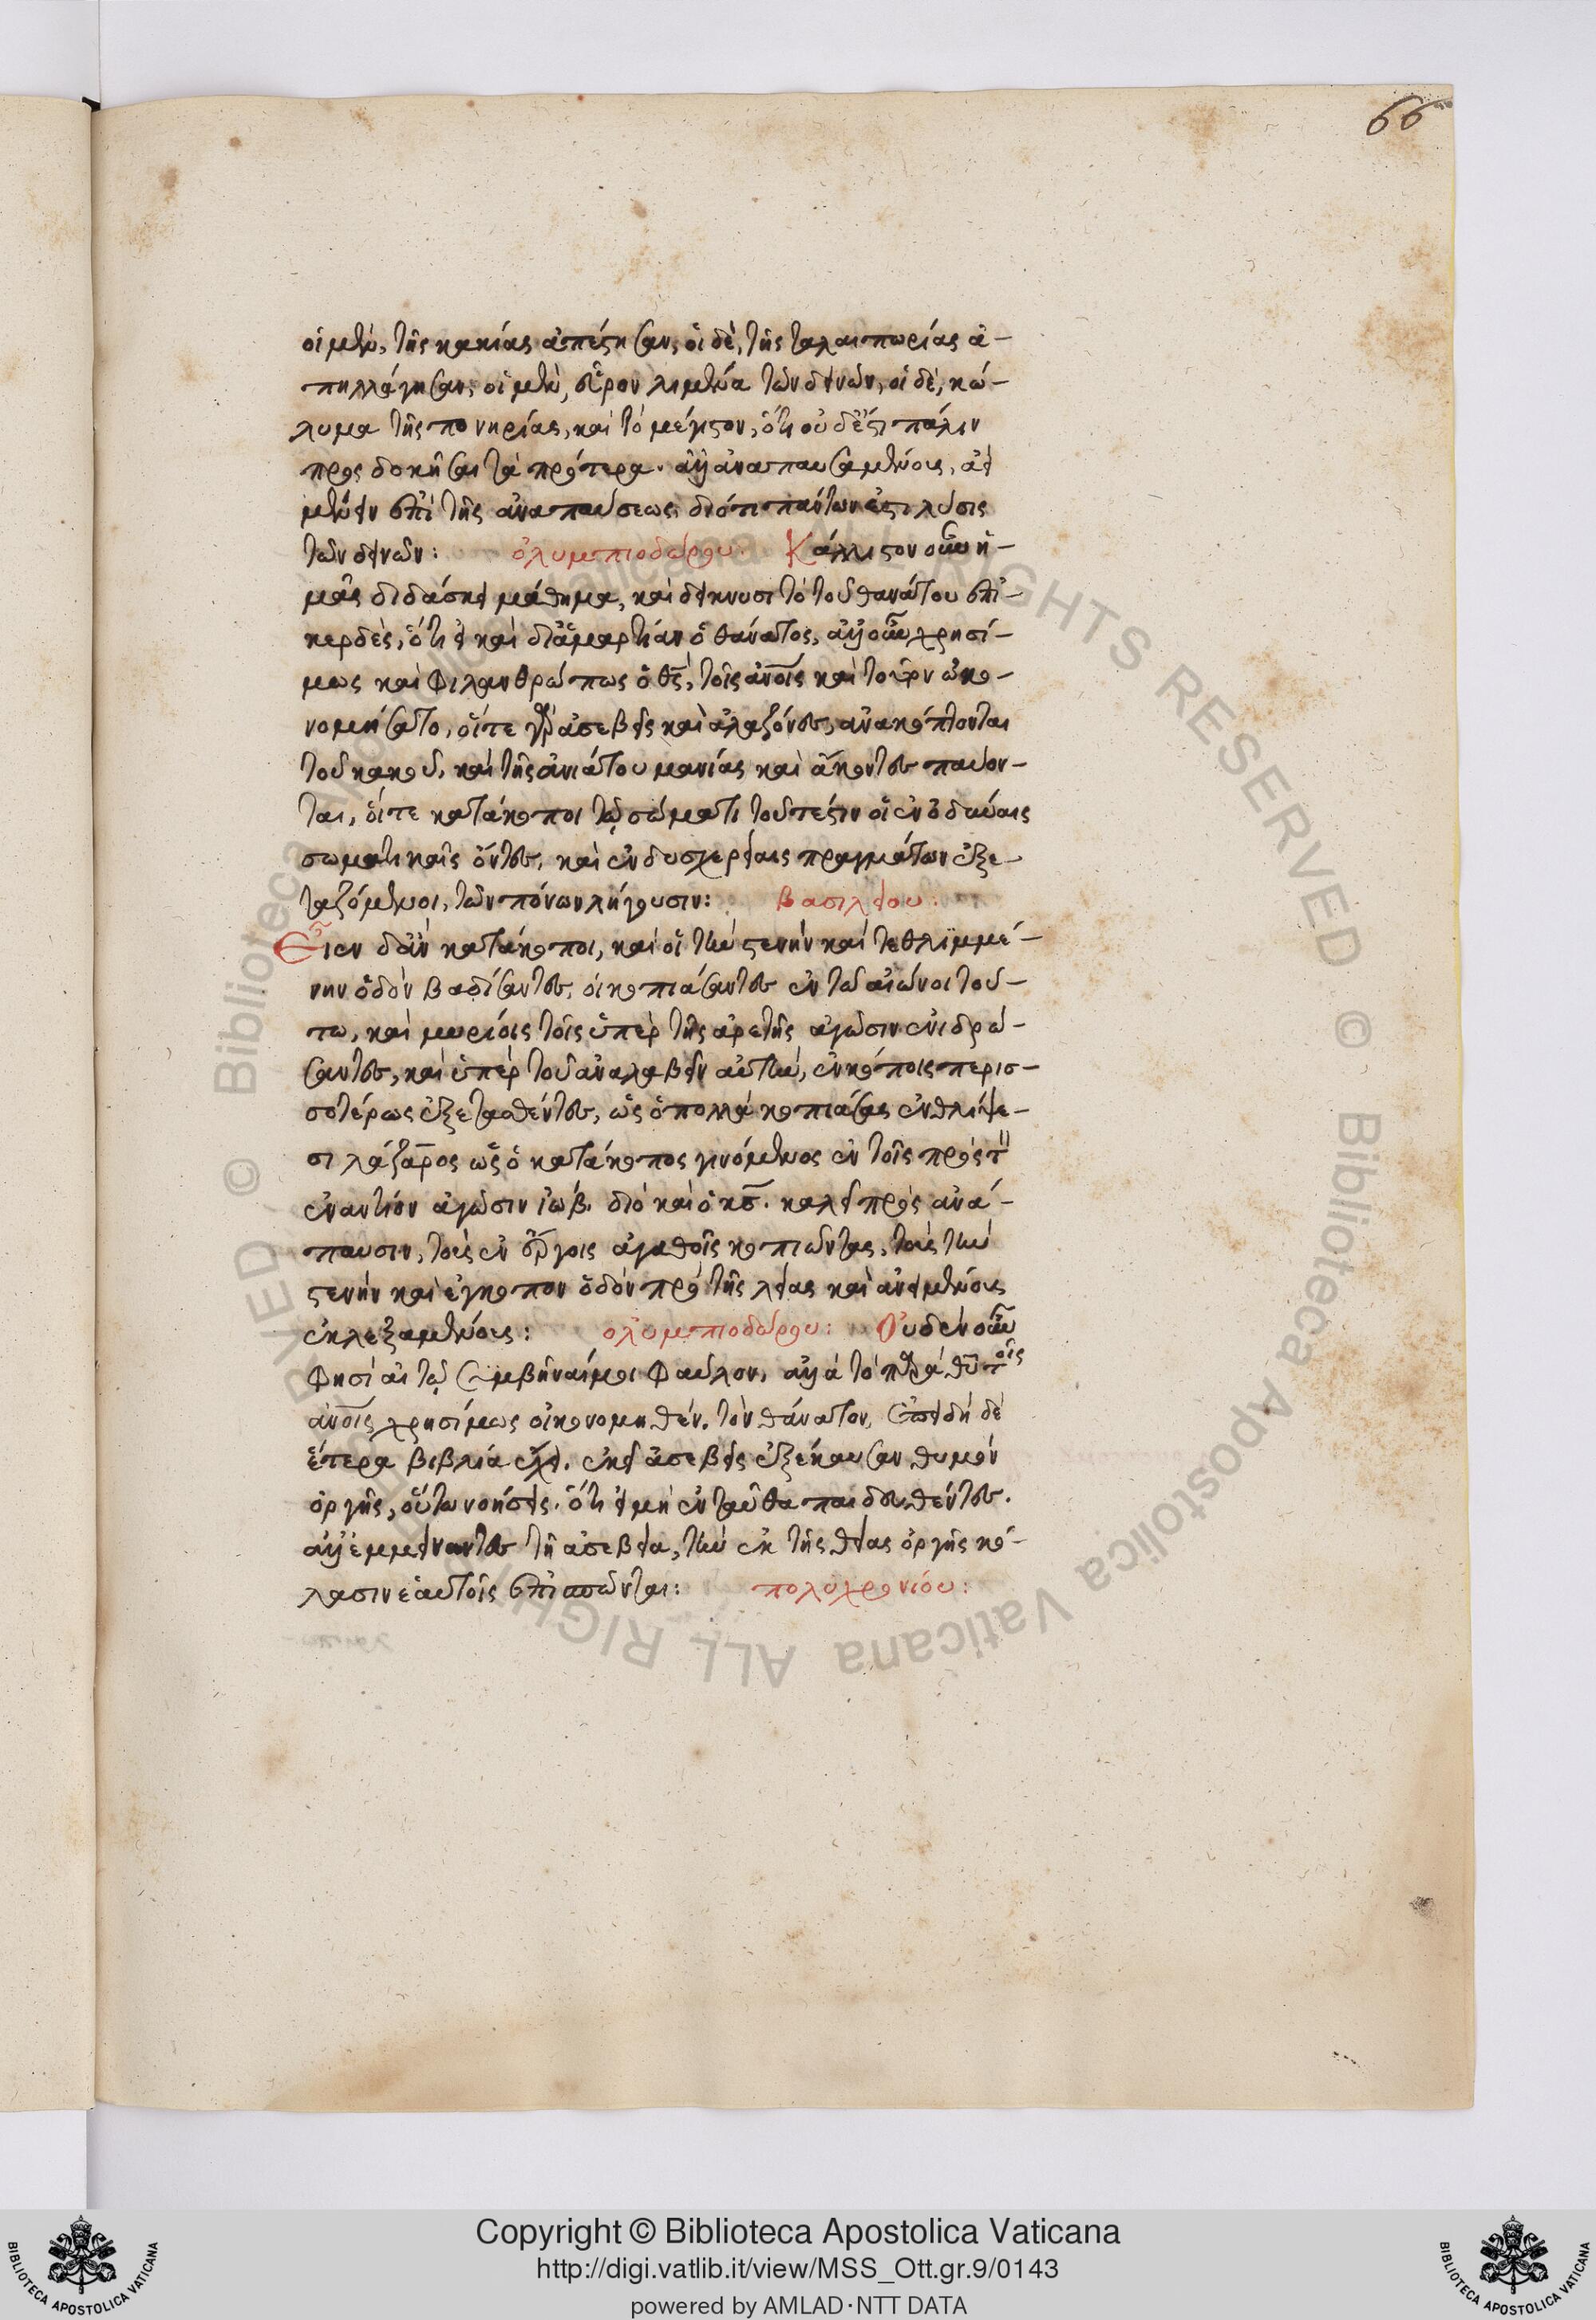 66
οἱ μὲν, τῆς κακίας ἀπέστησαν, οἱ δὲ, τῆς ταλαιπωρίας ἀ-
πηλλάγησαν, οἱ μὲν, εὗρον λιμένα τῶν δεινῶν, οἱ δὲ, κώ-
λυμα τῆς πονηρίας, καὶ τὸ μέγιστον, ὅτι οὐδέστι πάλιν
προσδοκῆσαι τὰ πρότερα. ἀλλ' ἀναπαυσαμένοις, ἀεὶ
μένειν ἐπὶ τῆς ἀναπαύσεως, διότι πάντων ἐστὶ λύσις
τῶν δεινῶν: ὀλυμπιοδώρου. Κάλλιστον οὖν ἡ-
μᾶς διδάσκει μάθημα, καὶ δείκνυσι τὸ τοῦ θανάτου ἐπι-
κερδὲς, ὅτι εἰ καὶ δι' ἁμαρτίαν ὁ θάνατος, ἀλλ' οὖν χρησί-
μως καὶ φιλανθρώπως ὁ θς, τοῖς ἀνοις καὶ τοῦτον ὠκο-
νομήσατο, οἵτε γὰρ ἀσεβεῖς καὶ ἀλαζόνες, ἀνακόπτονται
τοῦ κακοῦ, καὶ τῆς ἀνιάτου μανίας καὶ ἄκοντες παύον-
ται, οἵτε κατάκοποι τῷ σώματι τουτέστιν οἱ ἐν ὀδύναις
σωματικαῖς ὄντες, καὶ ἐν δυσχερείαις πραγμάτων ἐξε-
ταζόμενοι, τῶν πόνων λήγουσιν: βασιλείου.
Εἶεν δ' ἂν κατάκοποι, καὶ οἱ τὴν στενὴν καὶ τεθλιμμέ-
νην ὁδὸν βαδίσαντες, οἱ κοπιάσαντες ἐν τῷ αἰῶνι τού-
τω, καὶ μυρίοις τοῖς ὑπὲρ τῆς ἀρετῆς ἀγῶσιν ἐνιδρώ-
σαντες, καὶ ὑπὲρ τοῦ ἀναλαβεῖν αὐτὴν, ἐν κόποις περισ-
σοτέρως ἐξετασθέντες, ὡς ὁ πολλὰ κοπιάσας ἐν θλίψε-
σι λάζαρος ὡς ὁ κατάκοπος γινόμενος ἐν τοῖς πρὸς τ
ἐναντίον ἀγῶσιν ἰώβ. διὸ καὶ ὁ κς. καλεῖ πρὸς ἀνά-
παυσιν, τοὺς ἐν ἔργοις ἀγαθοῖς κοπιῶντας, τοὺς τὴν
στενὴν καὶ ἔγκοπον ὁδὸν πρὸ τῆς λείας καὶ ἀνειμένης
ἐκλεξαμένους: ολυμπιοδώρου: Οὐδὲν οὖν
φησὶ αἰτῶ συμβῆναί μοι φαῦλον, ἀλλὰ τὸ παρὰ θυ τοῖς
ἀνοις χρησίμως οἰκονομηθὲν. τὸν θάνατον, ἐπειδὴ δὲ
ἕτερα βιβλία ἔχει. ἐκεῖ ἀσεβεῖς ἐξέκαυσαν θυμὸν
ὀργῆς, οὕτω νοήσεις. ὅτι εἰ μὴ ἐνταῦθα παιδευθέντες.
ἀλλ' ἐμμείναντες τῇ ἀσεβεία, τὴν ἐκ τῆς θείας ὀργῆς κό-
λασιν ἑαυτοῖς ἐπισπῶνται: πολυχρονίου:
Copyright © Biblioteca Apostolica Vaticana
http://digi.vatlib.it/view/MSS_Ott.gr.9/0143
powered by AMLAD·NTT DATA